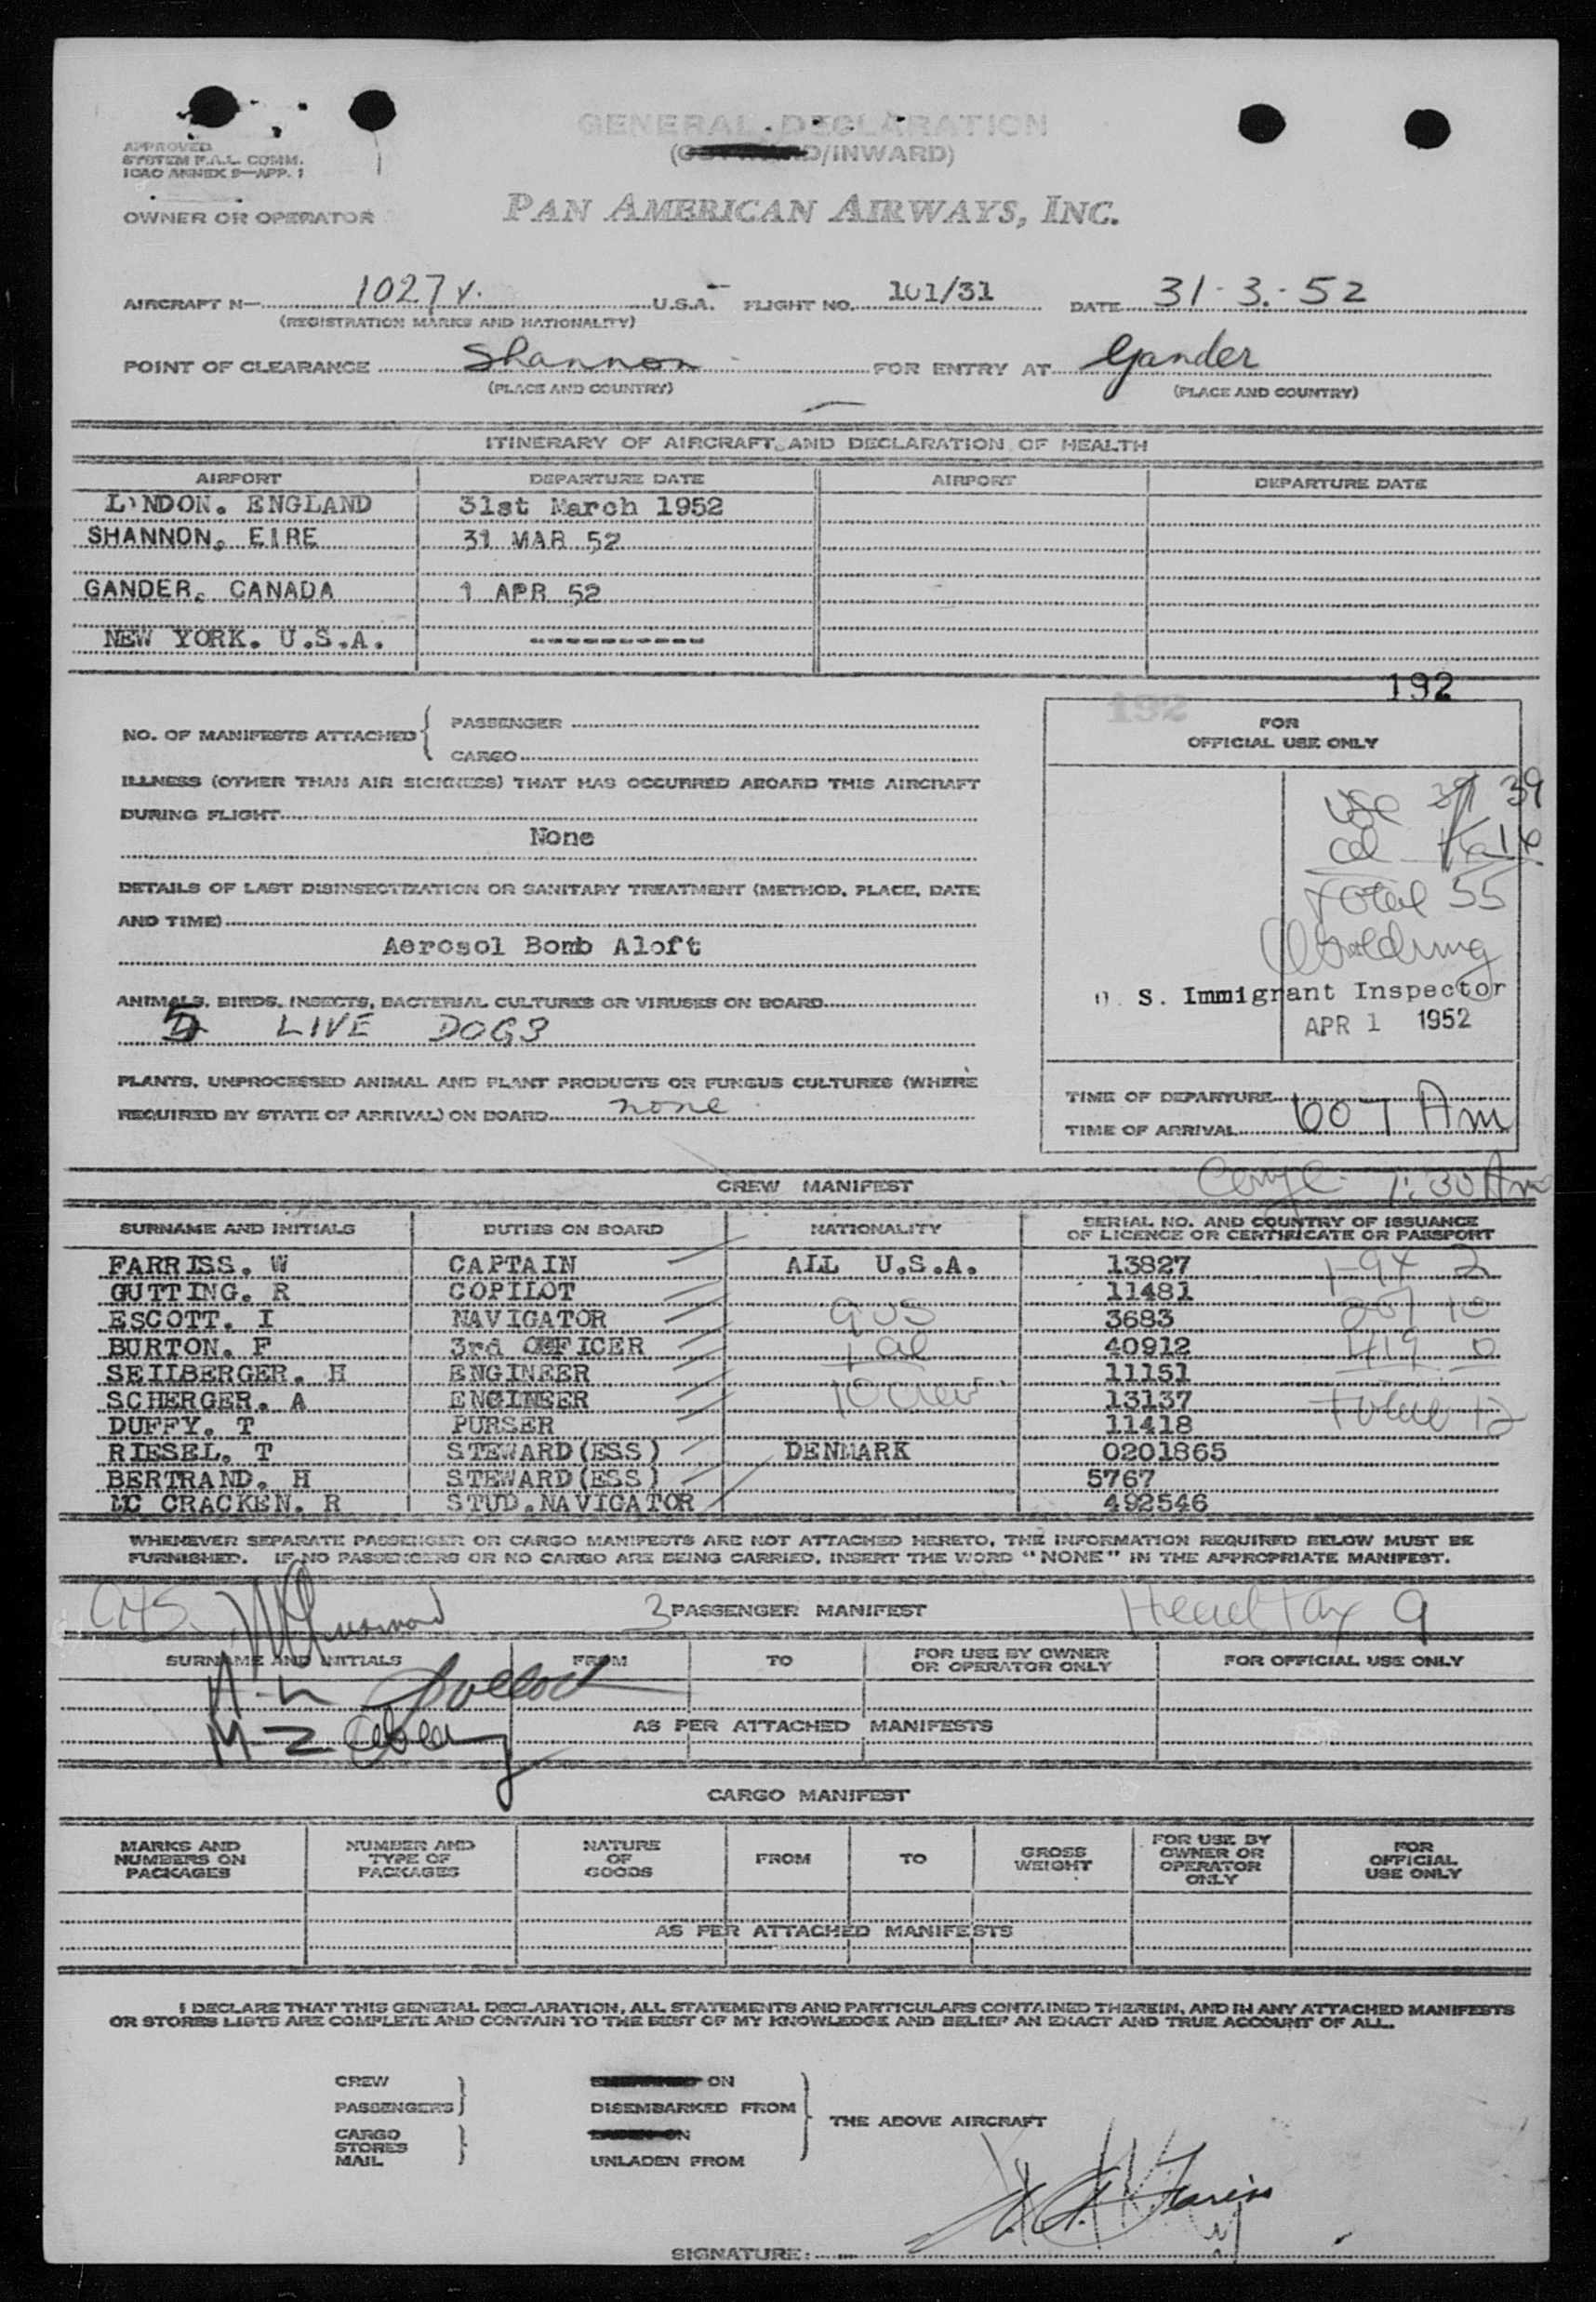 GENERAL DECLARATION
(OUTWARD/INWARD)
APPROVED
SYSTEM F.A.L. COMM.
ICAO ANNEX 9—APP. 1
OWNER OR OPERATOR PAN AMERICAN AIRWAYS, INC.
AIRCRAFT N— 1027 V. U.S.A. FLIGHT NO. 101/31 DATE 31-3.-52
(REGISTRATION MARKS AND NATIONALITY)
POINT OF CLEARANCE Shannon FOR ENTRY AT Gander
(PLACE AND COUNTRY) (PLACE AND COUNTRY)
ITINERARY OF AIRCRAFT AND DECLARATION OF HEALTH
AIRPORT DEPARTURE DATE AIRPORT DEPARTURE DATE
LONDON. ENGLAND 31st March 1952
SHANNON, EIRE 31 MAR 52
GANDER, CANADA 1 APR 52
NEW YORK. U.S.A. ----------
192
192
NO. OF MANIFESTS ATTACHED { PASSENGER
CARGO
FOR
OFFICIAL USE ONLY
ILLNESS (OTHER THAN AIR SICKNESS) THAT HAS OCCURRED ABOARD THIS AIRCRAFT
DURING FLIGHT
None
USC 39
al 16
Total 55
DETAILS OF LAST DISINSECTIZATION OR SANITARY TREATMENT (METHOD, PLACE, DATE
AND TIME)
Aerosol Bomb Aloft
U. S. Immigrant Inspector
APR 1 1952
ANIMALS, BIRDS, INSECTS, BACTERIAL CULTURES OR VIRUSES ON BOARD
5 LIVE DOGS
PLANTS, UNPROCESSED ANIMAL AND PLANT PRODUCTS OR FUNGUS CULTURES (WHERE
REQUIRED BY STATE OF ARRIVAL) ON BOARD none
TIME OF DEPARTURE
TIME OF ARRIVAL 607 Am
7:30 Am
CREW MANIFEST
SURNAME AND INITIALS DUTIES ON BOARD NATIONALITY SERIAL NO. AND COUNTRY OF ISSUANCE
OF LICENCE OR CERTIFICATE OR PASSPORT
FARRISS. W CAPTAIN ALL U.S.A. 13827 I-94 2
GUTTING. R COPILOT 11481
ESCOTT. I NAVIGATOR 9 US 3683 257 10
BURTON. F 3rd OFFICER 1 al 40912 419 0
SEIIBERGER. H ENGINEER 11151
SCHERGER. A ENGINEER 10 crew 13137 Total 12
DUFFY. T PURSER 11418
RIESEL. T STEWARD(ESS) DENMARK 0201865
BERTRAND. H STEWARD(ESS) 5767
MC CRACKEN. R STUD.NAVIGATOR 492546
WHENEVER SEPARATE PASSENGER OR CARGO MANIFESTS ARE NOT ATTACHED HERETO, THE INFORMATION REQUIRED BELOW MUST BE
FURNISHED. IF NO PASSENGERS OR NO CARGO ARE BEING CARRIED, INSERT THE WORD "NONE" IN THE APPROPRIATE MANIFEST.
3 PASSENGER MANIFEST Head Tax 9
SURNAME AND INITIALS FROM TO FOR USE BY OWNER
OR OPERATOR ONLY FOR OFFICIAL USE ONLY
AS PER ATTACHED MANIFESTS
CARGO MANIFEST
MARKS AND
NUMBERS ON
PACKAGES NUMBER AND
TYPE OF
PACKAGES NATURE
OF
GOODS FROM TO GROSS
WEIGHT FOR USE BY
OWNER OR
OPERATOR
ONLY FOR
OFFICIAL
USE ONLY
AS PER ATTACHED MANIFESTS
I DECLARE THAT THIS GENERAL DECLARATION, ALL STATEMENTS AND PARTICULARS CONTAINED THEREIN, AND IN ANY ATTACHED MANIFESTS
OR STORES LISTS ARE COMPLETE AND CONTAIN TO THE BEST OF MY KNOWLEDGE AND BELIEF AN EXACT AND TRUE ACCOUNT OF ALL.
CREW ON
PASSENGERS DISEMBARKED FROM
THE ABOVE AIRCRAFT
CARGO LADEN ON
STORES
MAIL UNLADEN FROM
SIGNATURE: